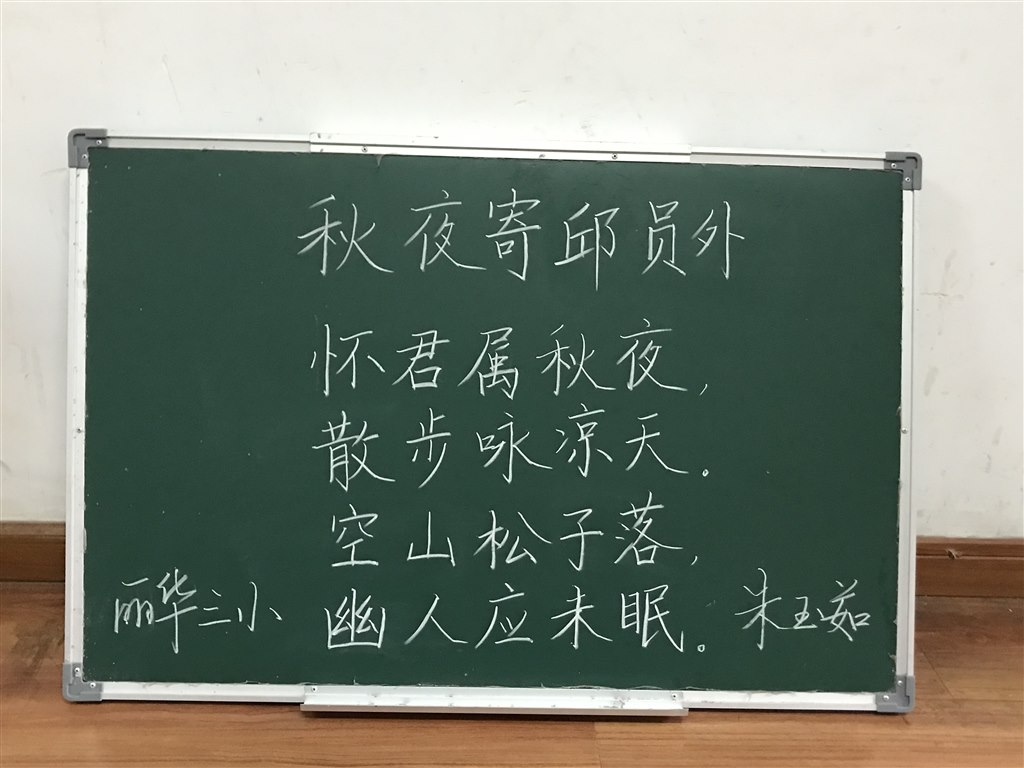 秋夜寄邱员外
怀君属秋夜，
散步咏凉天。
空山松子落，
幽人应未眠。
丽华三小
朱玉茹